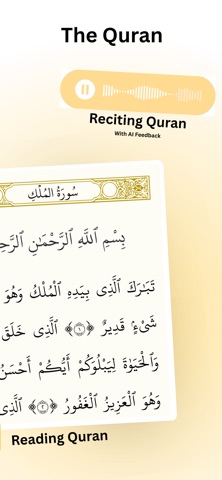 The Quran
Reciting Quran
With AI Feedback
سُورَةُ المُلْكِ
بِسْمِ ٱللَّهِ ٱلرَّحْمَٰنِ
تَبَٰرَكَ ٱلَّذِى بِيَدِهِ ٱلْمُلْكُ وَهُوَ
شَىْءٍ قَدِيرٌ ﴿١﴾ ٱلَّذِى خَلَقَ
وَٱلْحَيَوٰةَ لِيَبْلُوَكُمْ أَيُّكُمْ أَحْسَنُ
وَهُوَ ٱلْعَزِيزُ ٱلْغَفُورُ ﴿٢﴾ ٱلَّذِى
Reading Quran